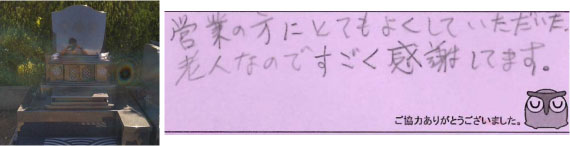 営業の方にとてもよくしていただいた。
老人なのですごく感謝してます。
ご協力ありがとうございました。